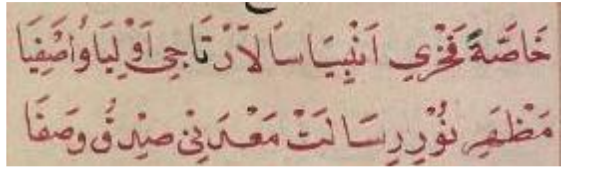 خَاصَّةً فَخْرِي اَنْبِيَا سَالَارْ تَاجِ اَوْلِيَا وُاَصْفِيَا
مَظْهَرِ نُوْرِ رِسَالَتْ مَعْدَنِىْ صِدْقُ وصَفَا